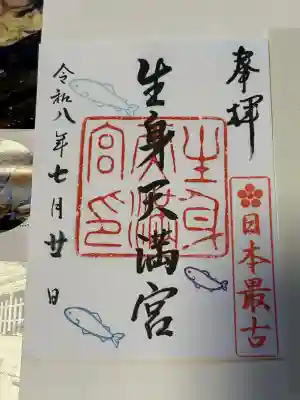 奉拝
日本最古
生身天満宮
生身天満宮印
令和八年七月廿日